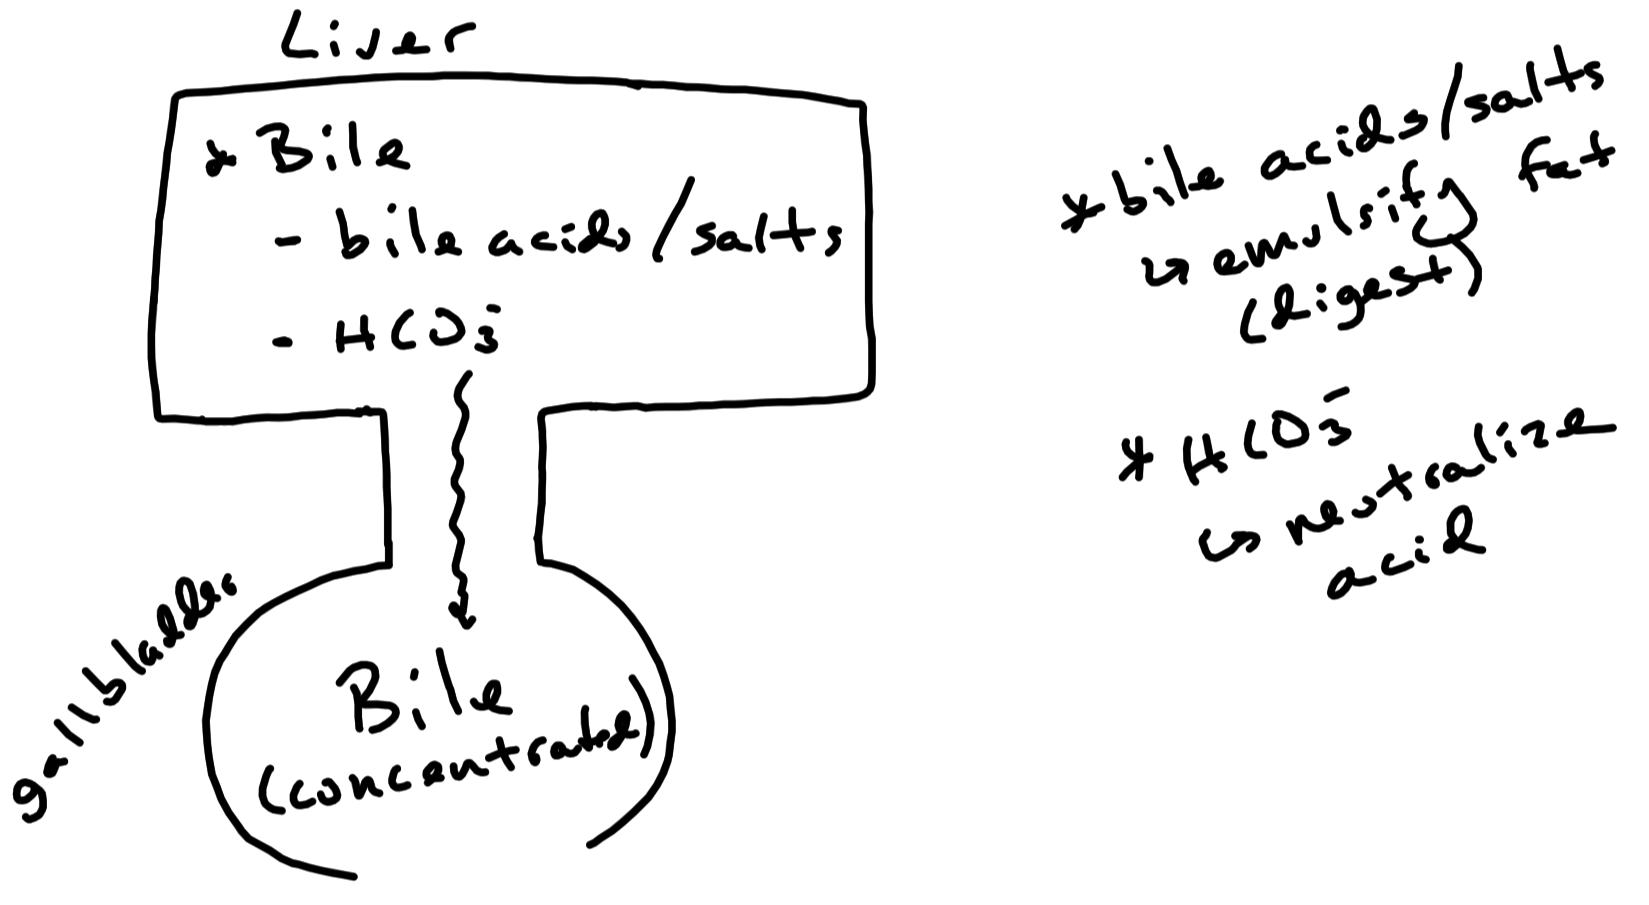 Liver
* Bile
- bile acids/salts
- HCO3-
gallbladder
Bile
(concentrated)
* bile acids/salts
↳ emulsify fat
(digest)
* HCO3-
↳ neutralize
acid